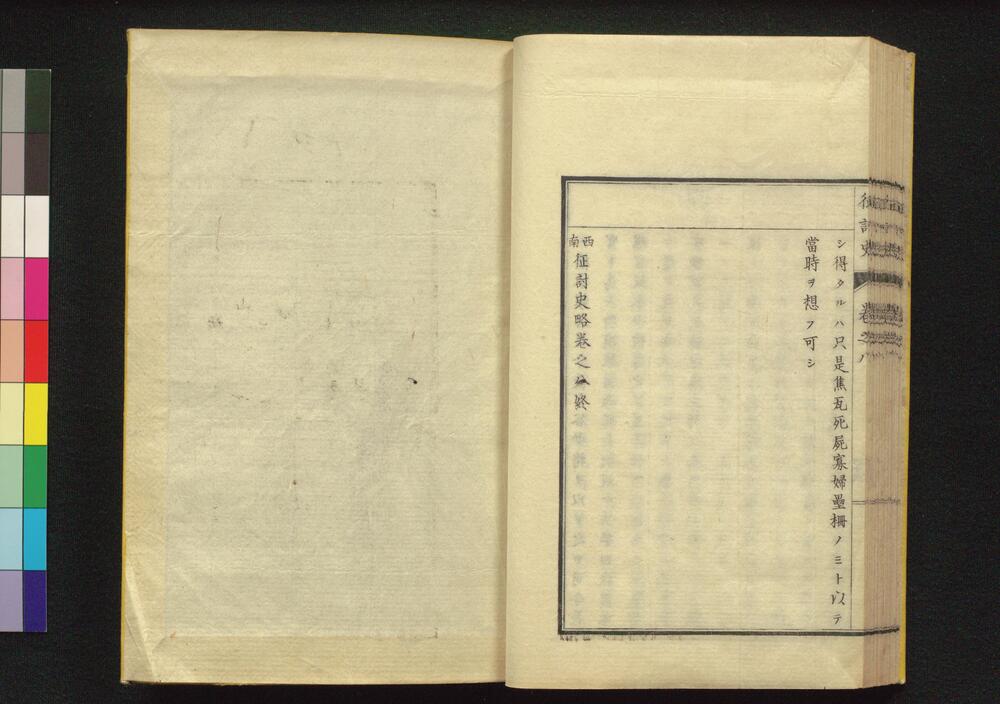 シ得タルハ只是焦瓦死屍寡婦壘柵ノミト以テ
當時ヲ想フ可シ
西南征討史略卷之八終
征討史 卷之八